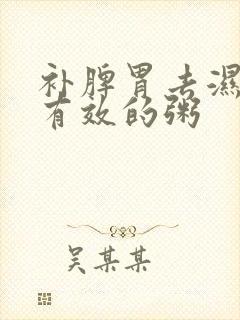 补脾胃去濕
有效的粥
吴某某